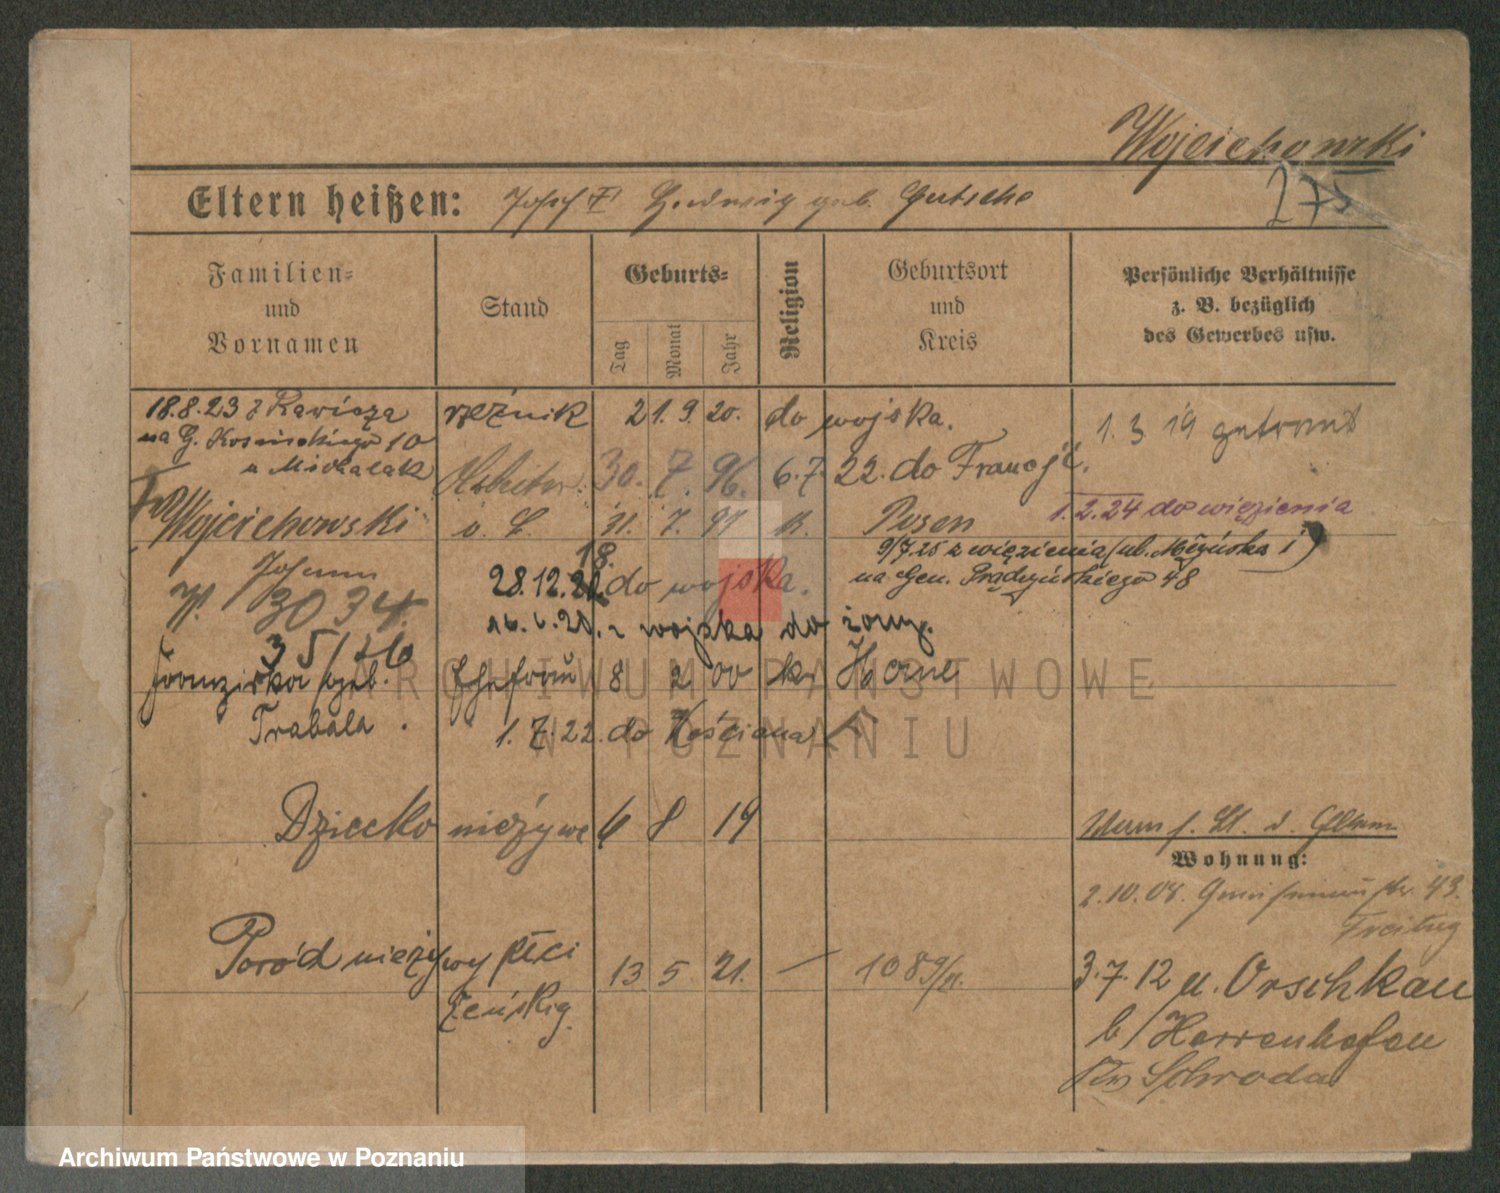 Wojciechowski
273
Eltern heißen: Josef II Hedwig geb. Gutsche
Familien-
und
Vornamen
Stand
Geburts-
Tag
Monat
Jahr
Religion
Geburtsort
und
Kreis
Persönliche Verhältnisse
z. B. bezüglich
des Gewerbes usw.
18.8.23 z Rawicza
na G. Kosińskiego 10
u Michalak
rzeźnik 21.9.20. do wojska.
1.3 19 getraut
Arbeiter 30. 7. 96. 6.7.22. do Francji.
Wojciechowski
31. 7. 97 k. Posen
1.2.24 do więzienia
9/7.25 z więzienia (ul. Młyńska i)
na Gen. Prądzyńskiego 48
Johann
18.
28.12.20. do wojska.
3034
z wojska do żony.
35/26
Franziska geb. Ehefrau 8 2 00 k. Horne
Trabala
1.7.22. do Kościana
Dziecko nieżywe 6 8 19
Wohnung:
2.10.08. Gneisenaustr. 43.
Freitag
Poród nieżywy płci 13 5 21. — 1089/21.
żeńskiej.
3.7.12 n. Orschkau
b/Herrenhofen
Krs Schroda
ARCHIWUM PAŃSTWOWE
W POZNANIU
Archiwum Państwowe w Poznaniu